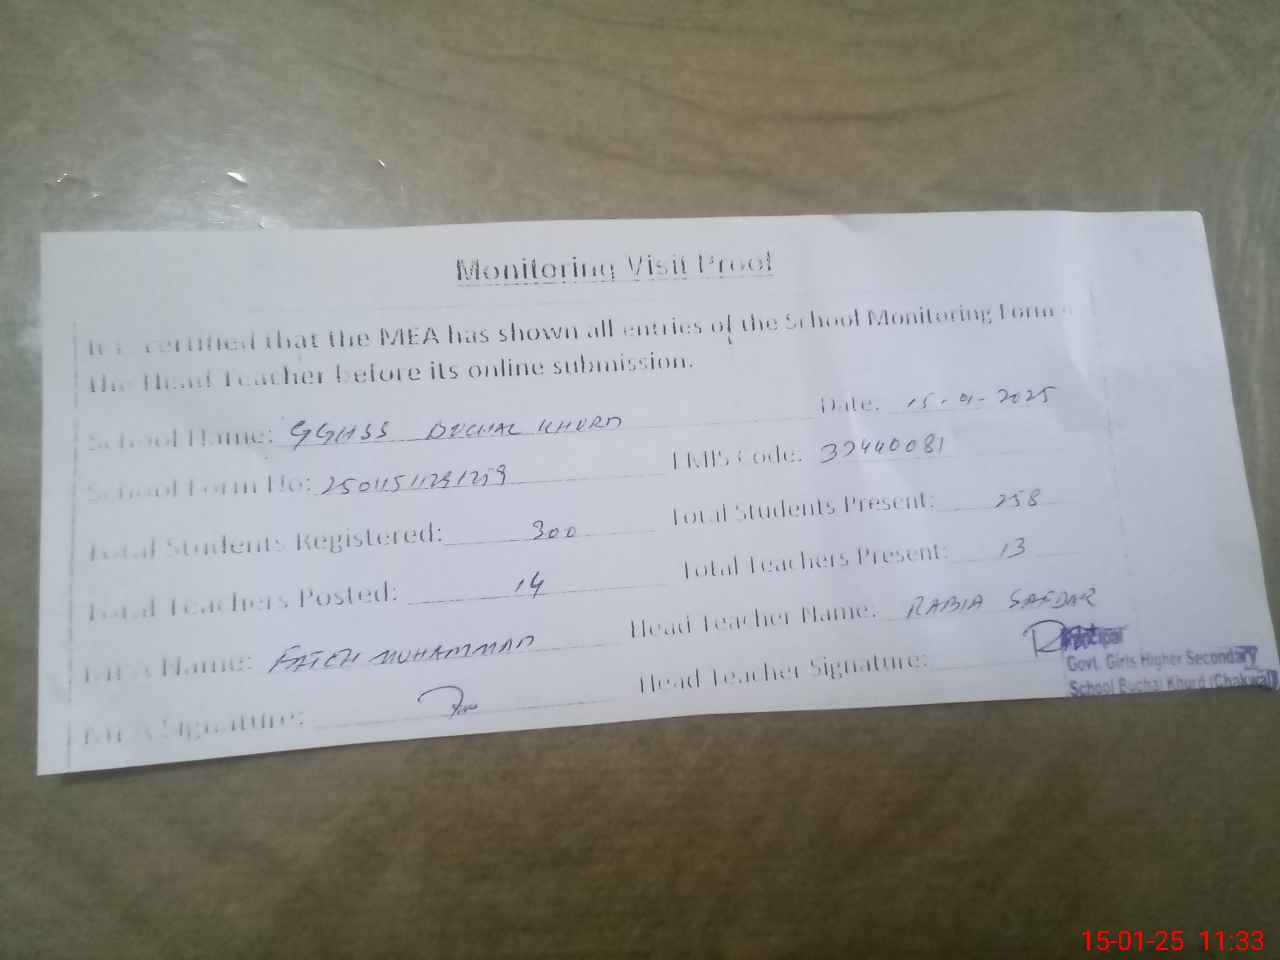 Monitoring Visit Proof
It is certified that the MEA has shown all entries of the School Monitoring Form
the Head Teacher before its online submission.
School Name: GGHSS BUCHAL KHURD Date: 15-01-2025
School Form No: EMIS Code: 37440081
Total Students Registered: 300 Total Students Present: 258
Total Teachers Posted: 14 Total Teachers Present: 13
MEA Name: FATEH MUHAMMAD Head Teacher Name: RABIA SAFDAR
MEA Signature: Head Teacher Signature:
Principal
Govt. Girls Higher Secondary
School Buchal Khurd (Chakwal)
15-01-25 11:33